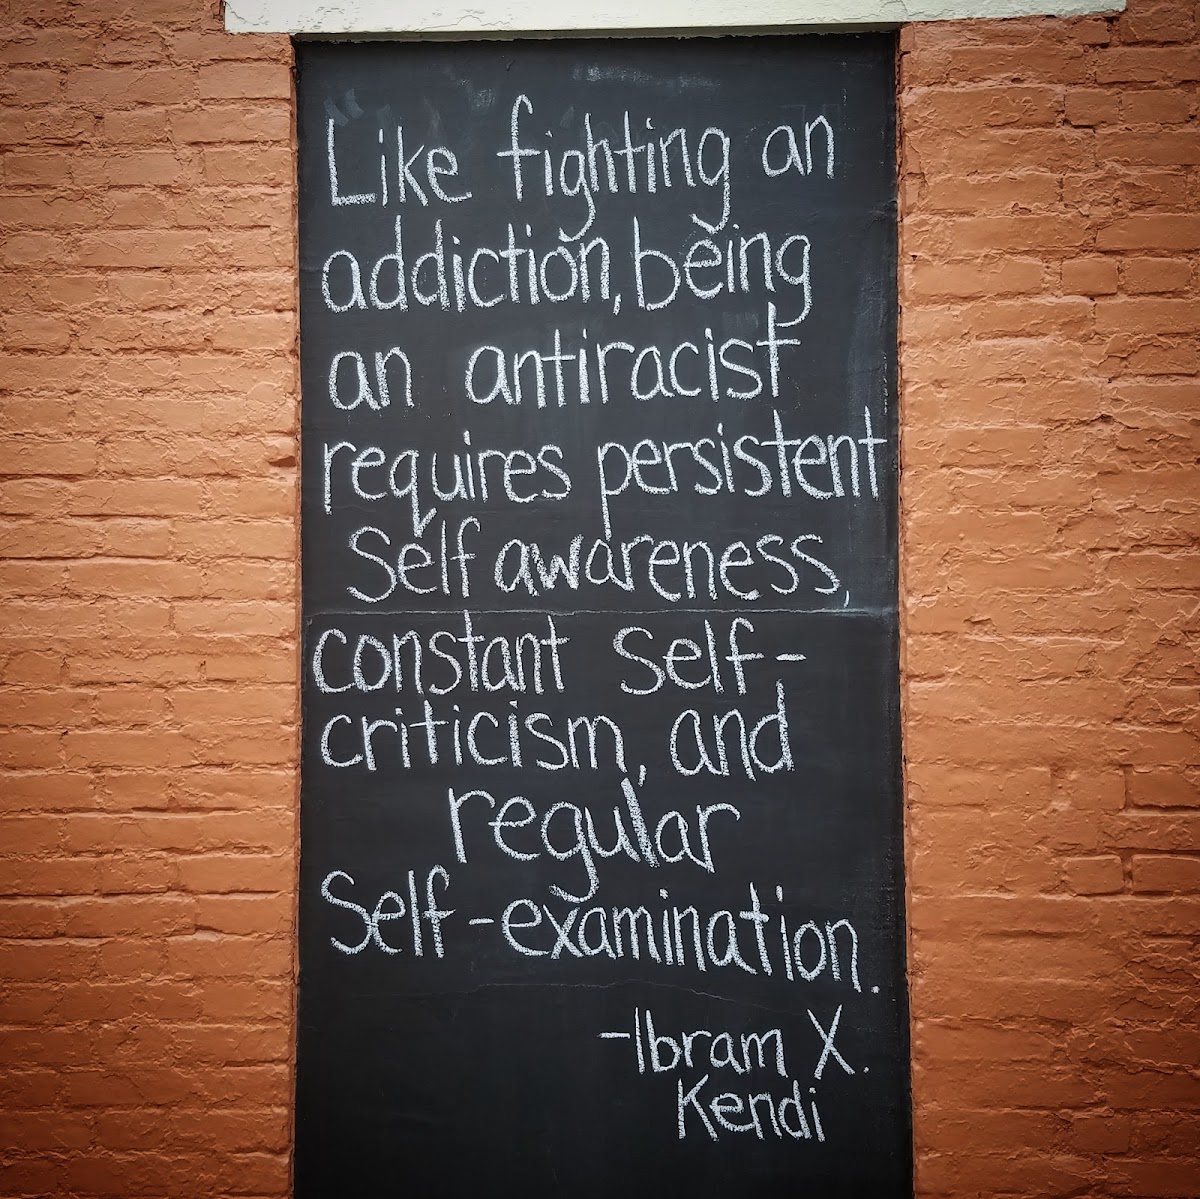 Like fighting an
addiction, being
an antiracist
requires persistent
Self awareness,
constant self-
criticism, and
regular
Self-examination.
-Ibram X.
Kendi